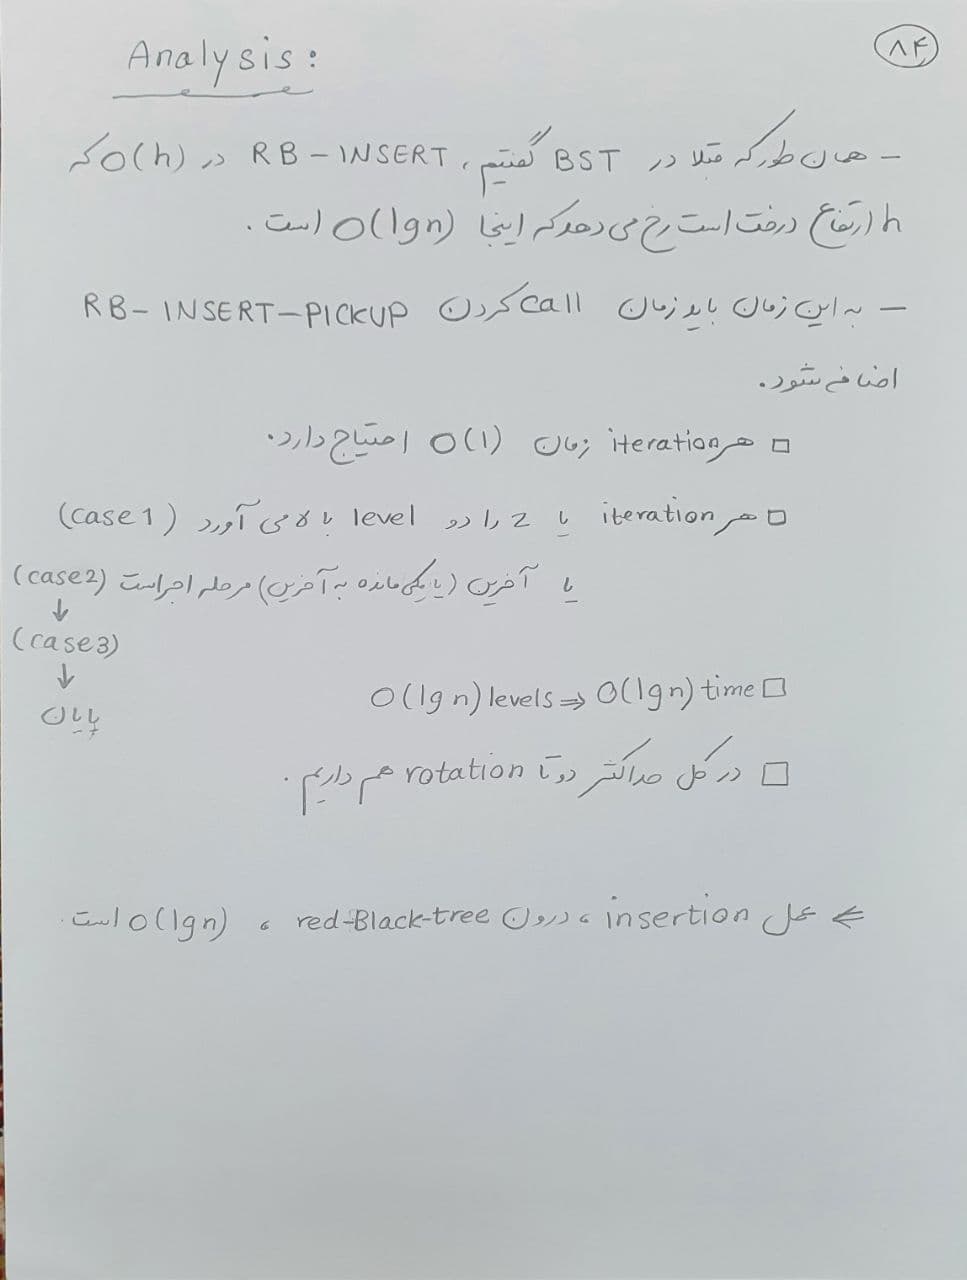 ۸۴
Analysis:
- همان طور که قبلا در BST گفتیم، RB-INSERT در O(h) که
h ارتفاع درخت است رخ می دهد که اینجا O(lgn) است.
- به این زمان باید زمان call کردن RB-INSERT-PICKUP
اضافه شود.
□ هر iteration زمان O(1) احتیاج دارد.
□ هر iteration یا z را دو level بالا می آورد (case1)
یا آخرین (یا یکی مانده به آخرین) مرحله اجراست (case2)
↓
(case3)
↓
پایان
□ O(lgn) levels ⇒ O(lgn) time
□ در کل حداکثر دو تا rotation هم داریم.
⇐ عمل insertion، درون red-Black-tree، O(lgn) است.